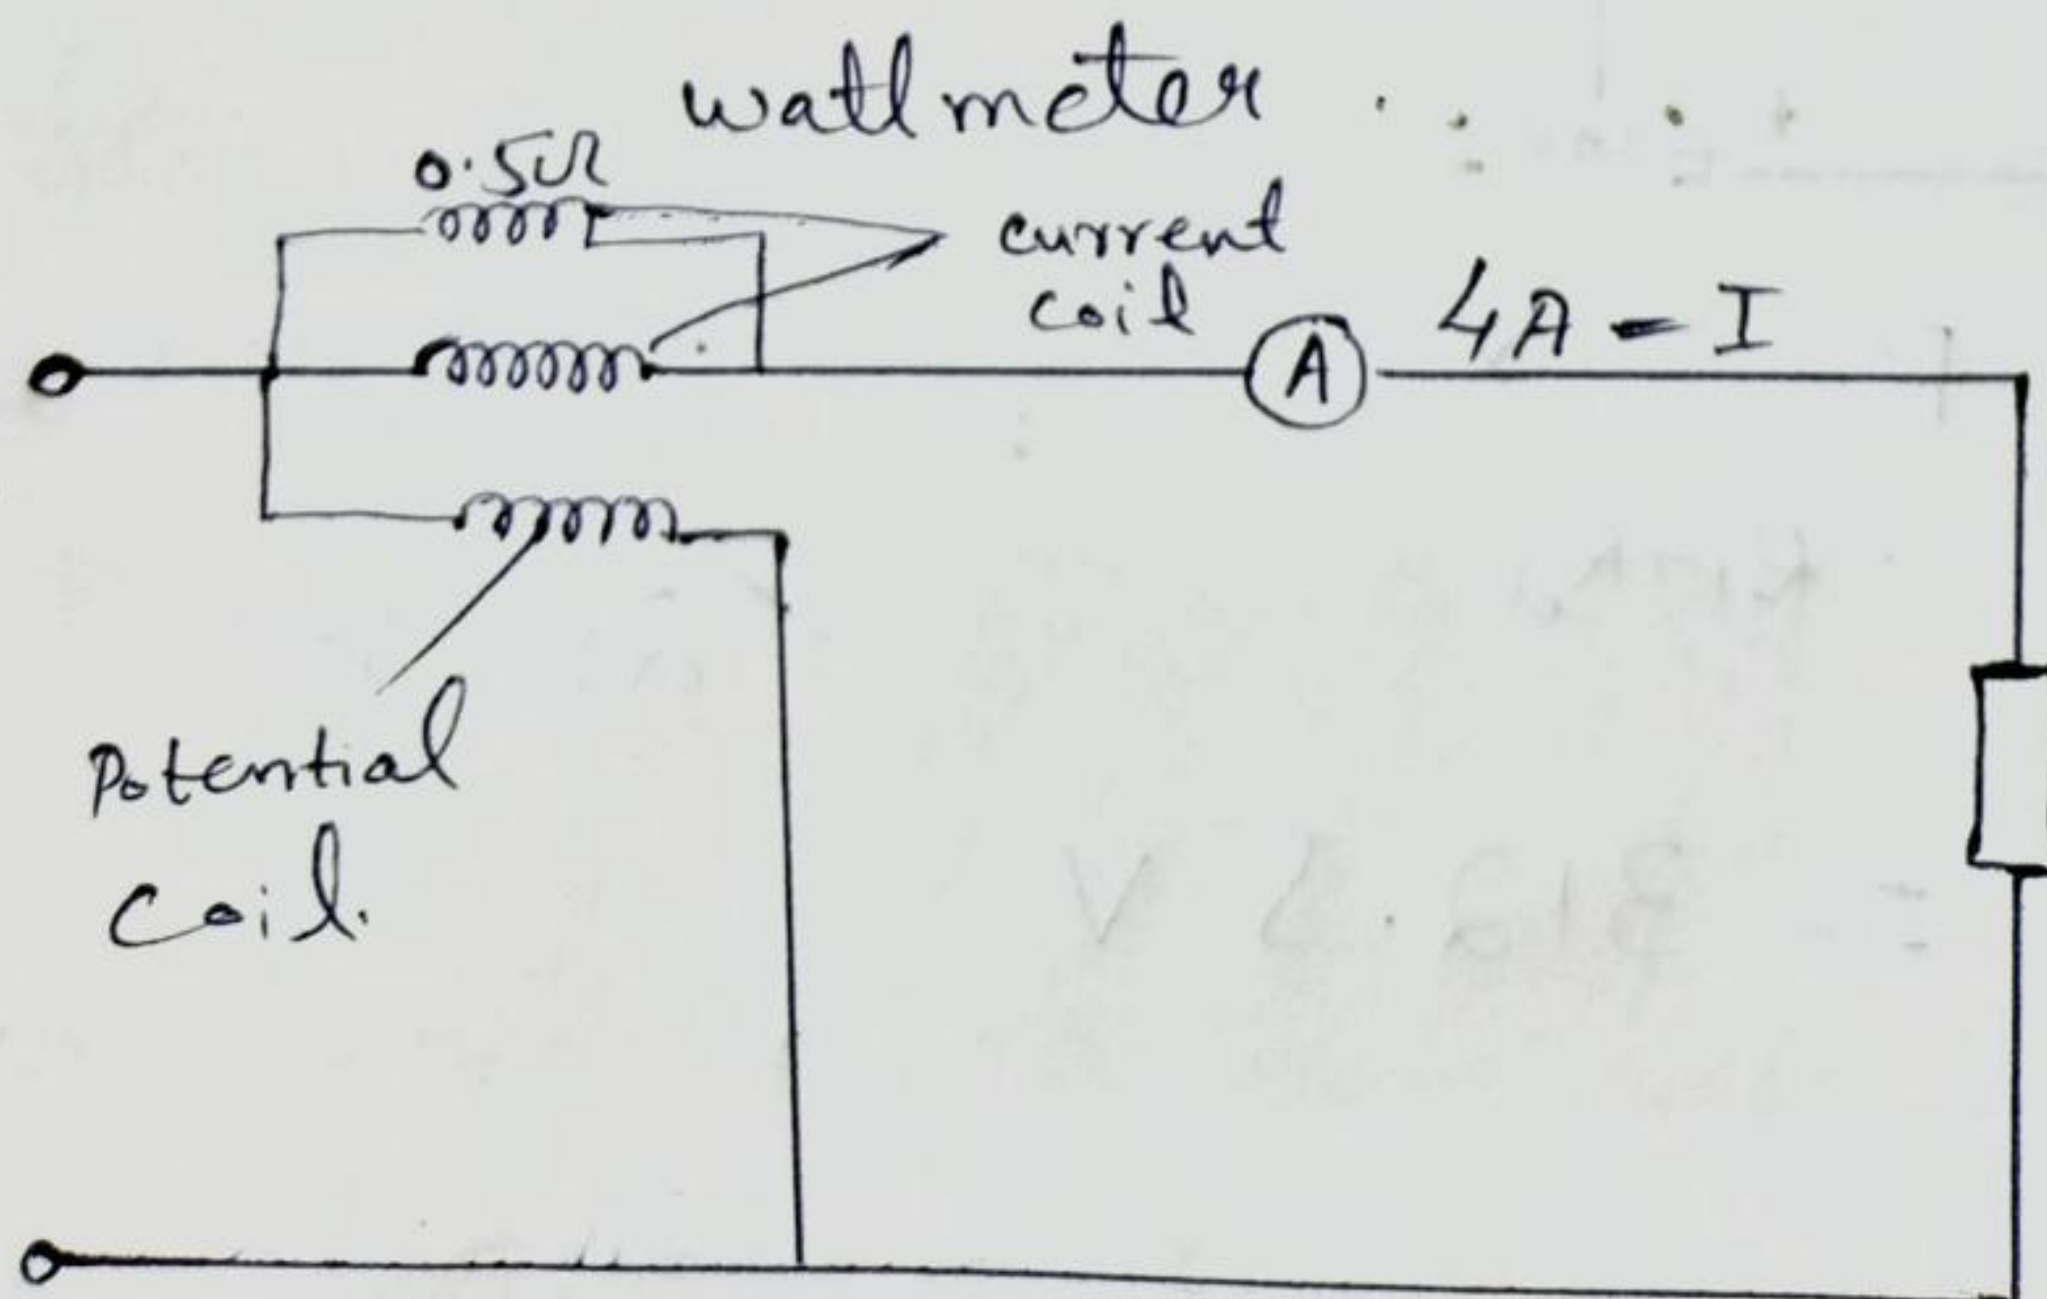 wattmeter
0.5Ω
current
coil
A
4A - I
Potential
Coil.